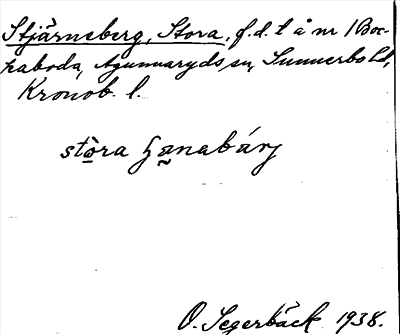 Stjärneberg, Stora, f.d. t å nr 1 Boc-
kaboda, Agunnaryds sn, Sunnerbo hd,
Kronob. l.
stòra ʃanabárj
O. Segerbäck 1938.